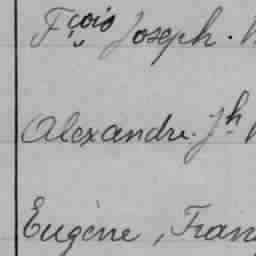 Fçois Joseph.
Alexandre. Jh
Eugène, Fran